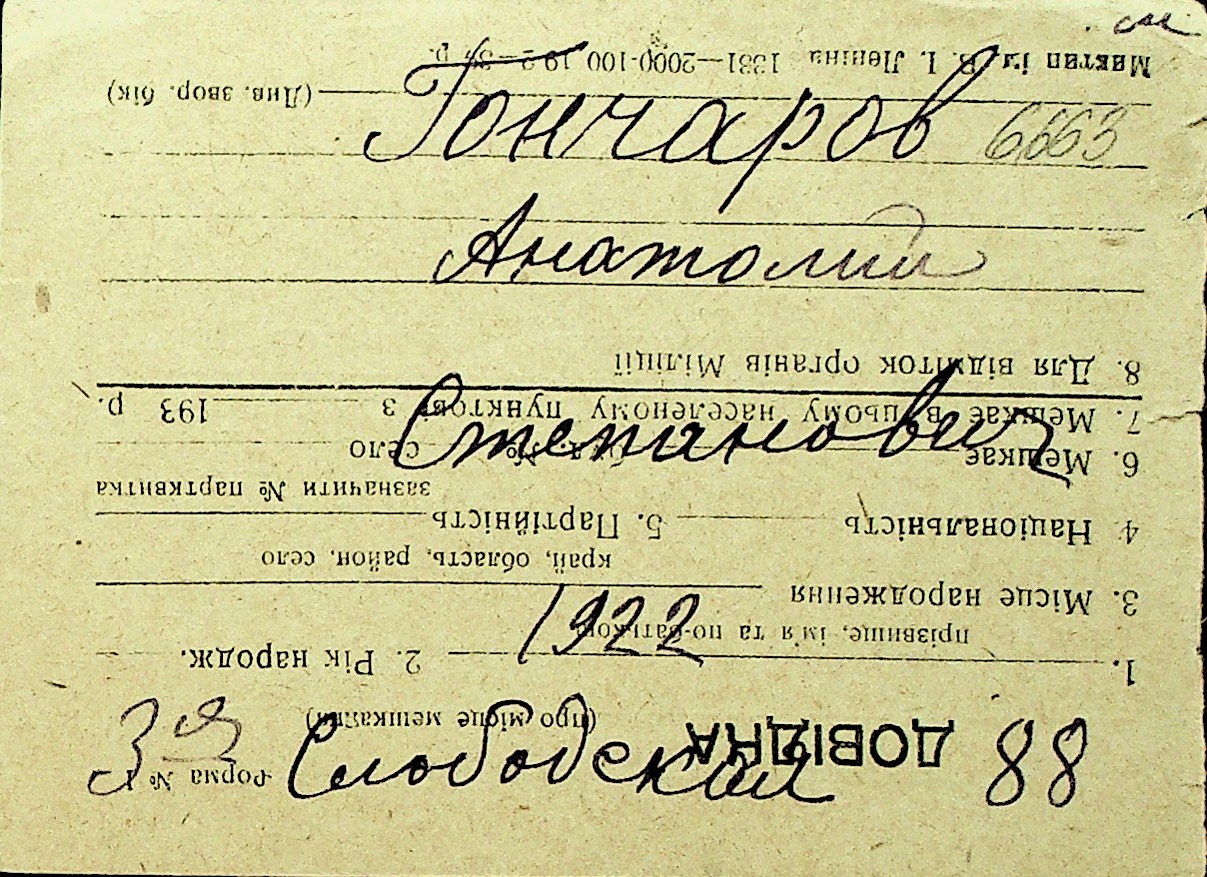 Гончаров 6663
Анатолий
Степанович
1922
3я Слободская 88
ДОВІДКА
(про місце мешкання)
Форма № 1
1. 2. Рік народж.
прізвище, ім'я та по-батькові
3. Місце народження
край, область, район, село
4. Національність 5. Партійність
зазначити № партквитка
6. Мешкає село
7. Мешкає в цьому населеному пунктові з 193 р.
8. Для відміток органів Міліції
(Див. звор. бік)
Мактип ім. В. І. Леніна 1331—2000-100